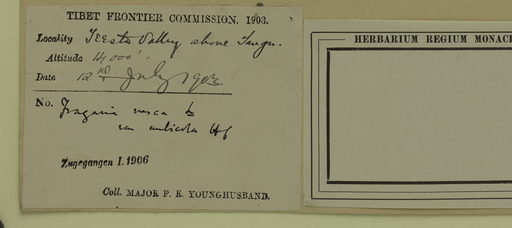 TIBET FRONTIER COMMISSION, 1903.
Locality Teesta Valley above Tangu.
Altitude 14,000'
Date 12th July 1903
No. Fragaria vesca L
var nubicola Hf
Zugegangen I. 1906
Coll. MAJOR F. E. YOUNGHUSBAND.
HERBARIUM REGIUM MONAC